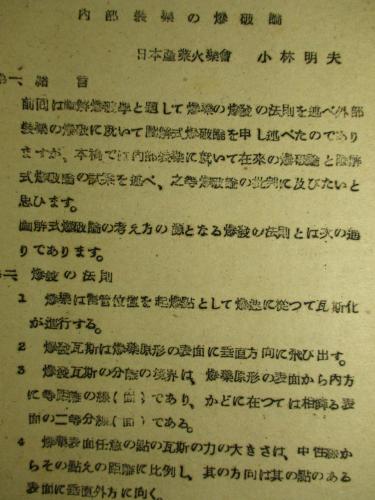 内部装薬の爆破論
日本産業火薬會 小林明夫
一、緒言
前回は幽解爆破學と題して爆薬の爆發の法則を述べ外部
装薬の爆破に就いて幽解式爆破論を申し述べたのであり
ますが、本稿では内部装薬に就いて在來の爆破論と幽解
式爆破論の試案を述べ、之等爆破論の批判に及びたいと
思ひます。
幽解式爆破論の考え方の源となる爆發の法則とは次の通
りであります。
二、爆發の法則
1 爆薬は雷管位置を起爆點として爆速に從つて瓦斯化
が進行する。
2 爆發瓦斯は爆薬原形の表面に垂直方向に飛び出す。
3 爆發瓦斯の分離の境界は、爆薬原形の表面から内方
に等距離の線(面)であり、かどに在つては相隣る表
面の二等分線(面)である。
4 爆薬表面任意の點の瓦斯の力の大きさは、中性線か
らその點えの距離に比例し、其の方向は其の點のある
表面に垂直外方に向く。